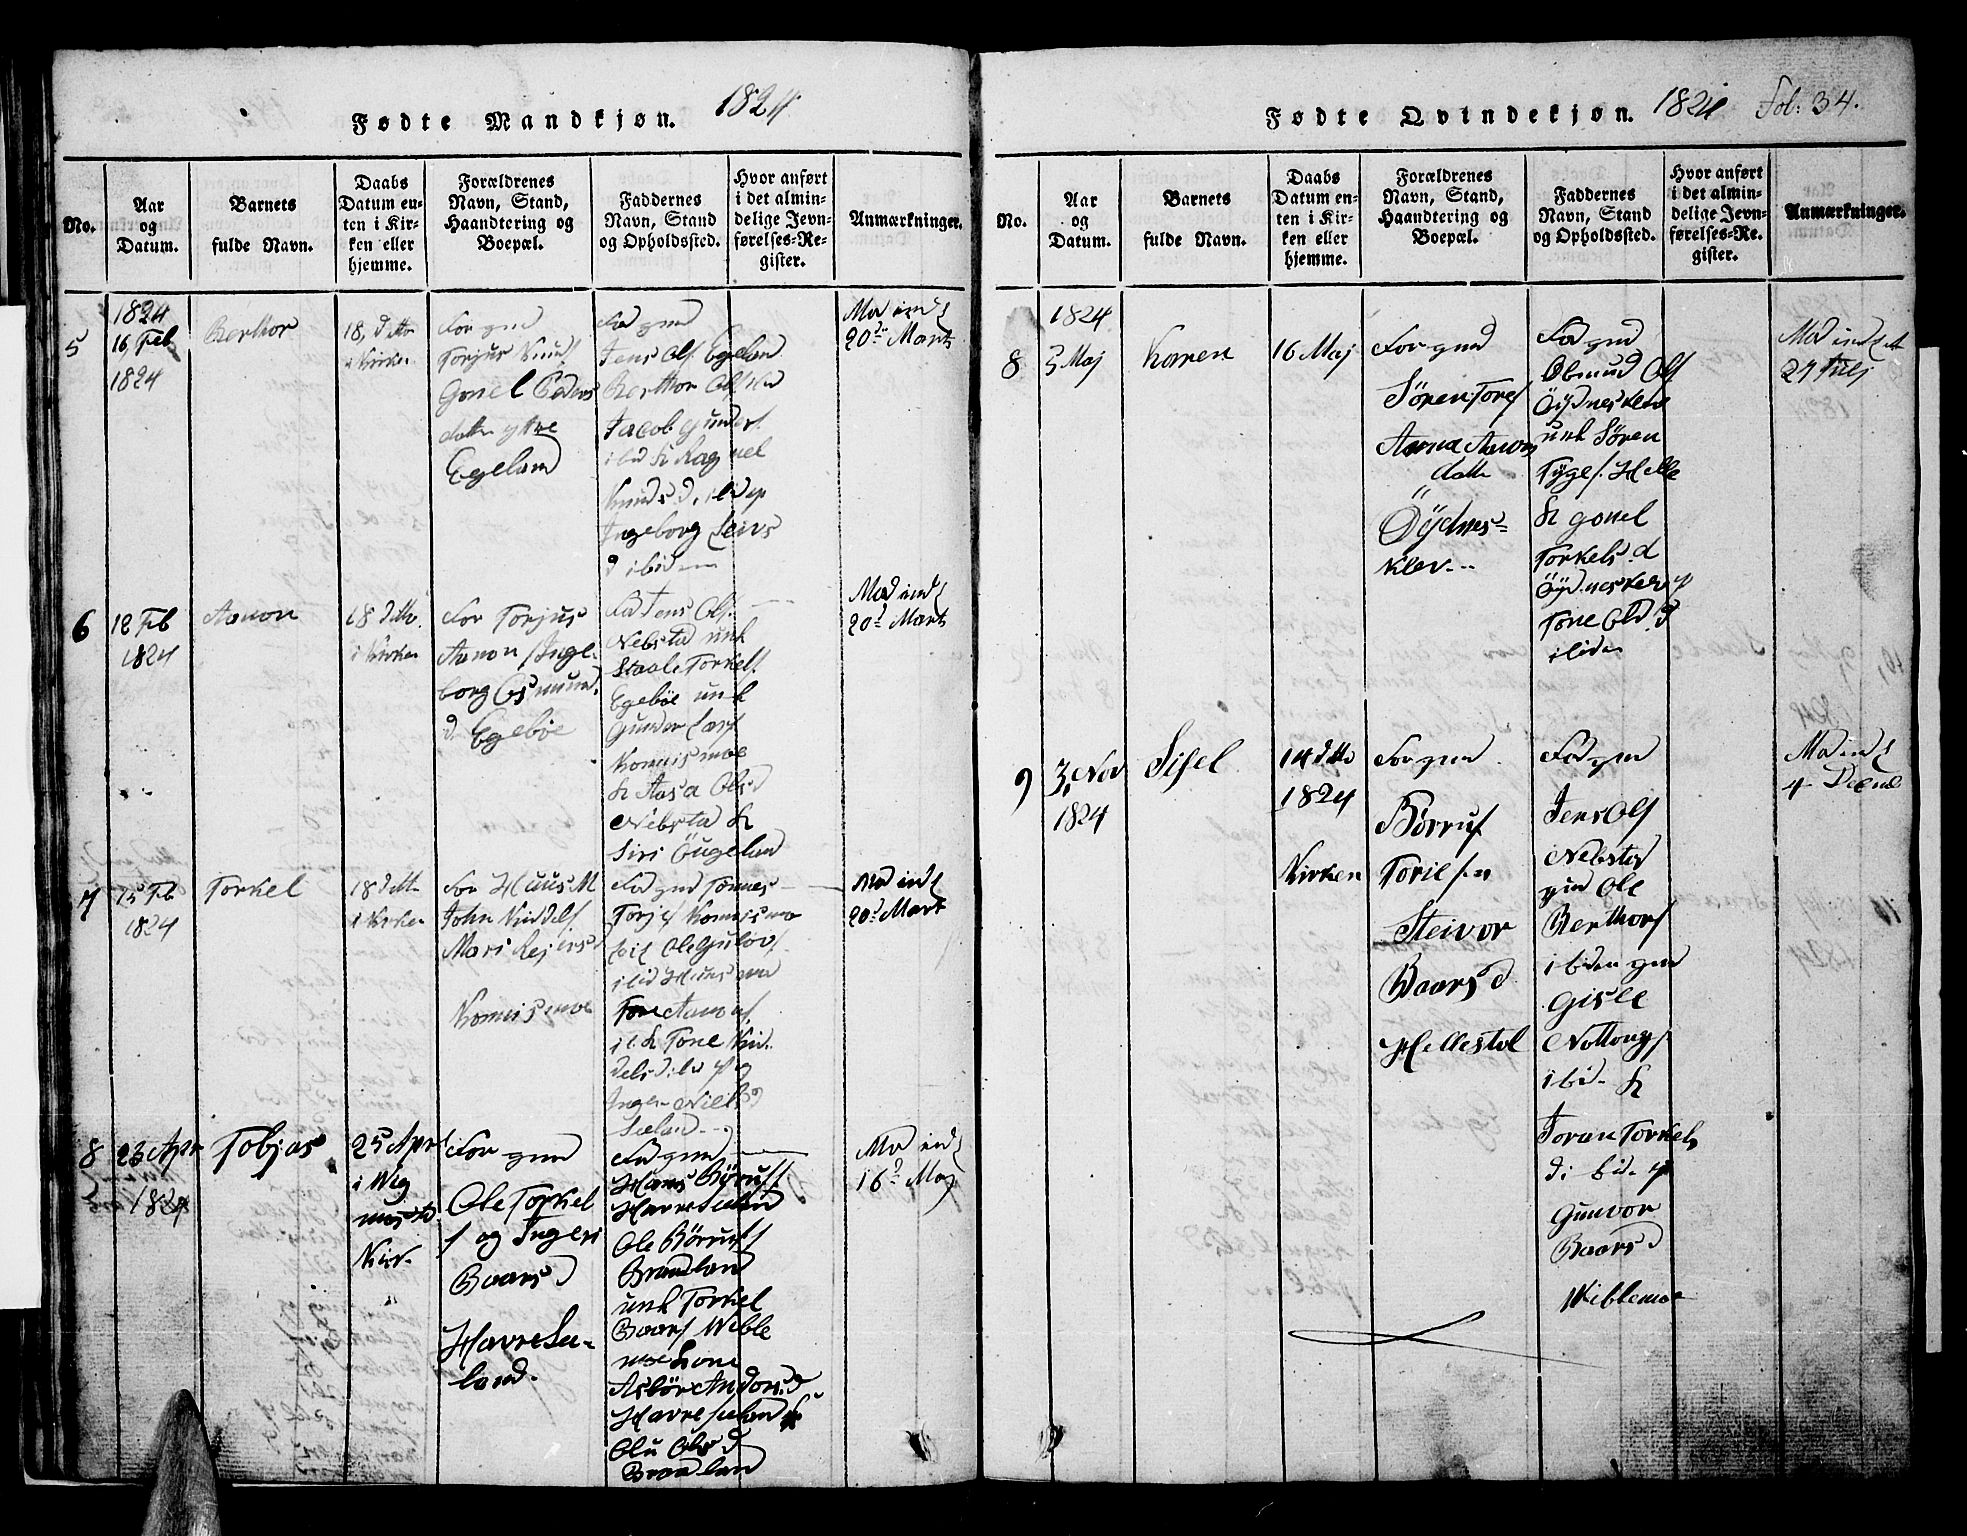 Fødte Mandkjøn. 1824
No.
Aar
og
Datum.
Barnets
fulde Navn.
Daabs
Datum en-
ten i Kir-
ken eller
hjemme.
Forældrenes
Navn, Stand,
Haandtering og
Boepæl.
Faddernes
Navn, Stand
og Opholdssted.
Hvor anført
i det almin-
delige Jevn-
førelses-Re-
gister.
Anmærkninger.
5
1824
16 Feb
1824
Berthor
18, ditto
i Kirken
For gmd
Torjus Knuds
Gonel Peders
datter yttre
Egeland
Fad gmd
Jens Ols Egeland
Berthor Ols ibid
Jacob Gunders
ibid K Ragnel
Knuds d. ibid og
Ingeborg Leivs
d ibidem
Mod ind
20de Marts
6
12 Feb
1824
Aanon
18 ditto
i Kirken
For Torjus
Aanons Inge-
borg Osmund.
d. Egebøe
Fad Jens Ols.
Nebstad unk
Staale Torkels.
Egebøe unk
Gunder Lars
Konnismoe
K Aasa Ols d
Nebstad K
Siri Øugeland
Mod ind
20d Marts
7
15 Feb
1824
Torkel
18 ditto
i Kirken
For Huus M
John Kiddels
Mari Rejers
Konnismoe
Fad gmd Tønnes
Torjes Konnismo
Ole Gulovs
ibid Huusmd
Tore Aanons.
K Tone Kid-
dels d. ibid
Inger Niels d
Seland
Mod ind
20d Marts
8
23 Apr
1824
Tobjas
25 Apr
i Wig
mostd
Kirk.
For gmd
Ole Torkel
s og Ingeri
Baars d
Havre Se-
land.
Fad gmd
Hans Børufs
Havreseland
Ole Børufs
Brandland
unk Torkel
Baars Wible
moe kone
Asbør Andors d
Havreseland
Olu Ols d
Brandland
Mod ind
16d Maj
Fødte Qvindekjøn. 1824 Fol: 34.
No.
Aar
og
Datum.
Barnets
fulde Navn.
Daabs
Datum en-
ten i Kir-
ken eller
hjemme.
Forældrenes
Navn, Stand,
Haandtering og
Boepæl.
Faddernes
Navn, Stand
og Opholdssted.
Hvor anført
i det almin-
delige Jevn-
førelses-Re-
gister.
Anmærkninger.
8
1824
5 Maj
Karen
16 Maj
For gmd
Søren Tores
Anna Aanons
datter
Øydnes-
klev
Fad gmd
Osmund Ols
Øydnesklev
unk Søren
Tyges. Helle
K gonel
Torkels. d
Øydnesklev
Tone Ols d
ibidem
Mod indt
27 Juli
9
3, Nov
1824
Sissel
14 ditto
1824
Kirken
For gmd
Børruf
Torilsen
Steivor
Baars d
Hellestol
Fad gmd
Jens Ols
Nebstad
gmd Ole
Berthors
ibidem gmd
Gisle
Nottongs
ibid K
Joran Torkels
d ibid. p
Gunvor
Baars d
Wiblemoe
Mod ind
4 Decmb